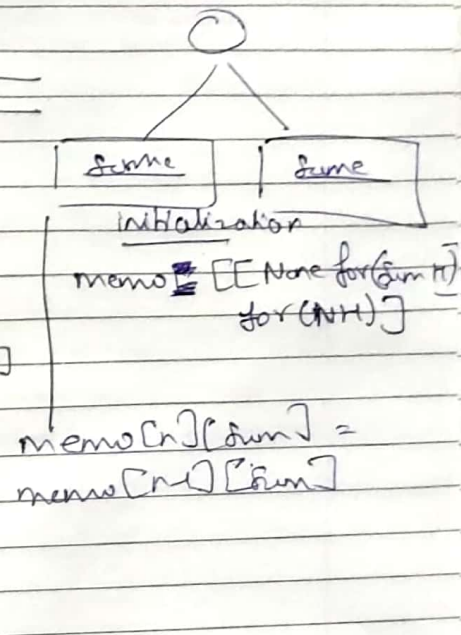 Same Same
initialization
memo = [[None for(sum+1)
for(N+1)]
]
memo[n][sum] =
memo[n-1][sum]